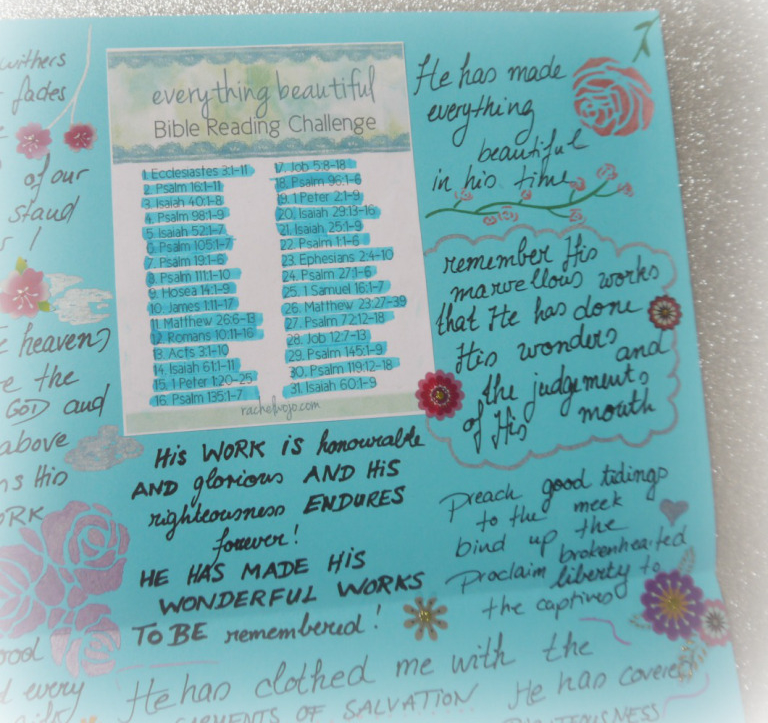 withers
fades
of our
stand
!
heavens
the
GOD and
above
His
everything beautiful
Bible Reading Challenge
1. Ecclesiastes 3:1-11
2. Psalm 16:1-11
3. Isaiah 40:1-8
4. Psalm 98:1-9
5. Isaiah 52:1-7
6. Psalm 105:1-7
7. Psalm 19:1-6
8. Psalm 111:1-10
9. Hosea 14:1-9
10. James 1:11-17
11. Matthew 26:6-13
12. Romans 10:11-16
13. Acts 3:1-10
14. Isaiah 61:1-11
15. 1 Peter 1:20-25
16. Psalm 135:1-7
17. Job 5:8-18
18. Psalm 96:1-6
19. 1 Peter 2:1-9
20. Isaiah 29:13-16
21. Isaiah 25:1-9
22. Psalm 1:1-6
23. Ephesians 2:4-10
24. Psalm 27:1-6
25. 1 Samuel 16:1-7
26. Matthew 23:27-39
27. Psalm 72:12-18
28. Job 12:7-13
29. Psalm 145:1-9
30. Psalm 119:12-18
31. Isaiah 60:1-9
rachelwojo.com
He has made
everything
beautiful
in his time
remember His
marvellous works
that He has done
His wonders and
the judgements
of His mouth
His WORK is honourable
AND glorious AND His
righteousness ENDURES
forever!
HE HAS MADE HIS
WONDERFUL WORKS
TO BE remembered!
Preach good tidings
to the meek
bind up the
brokenhearted
Proclaim liberty to
the captives
every
He has clothed me with the
GARMENTS OF SALVATION He has covered